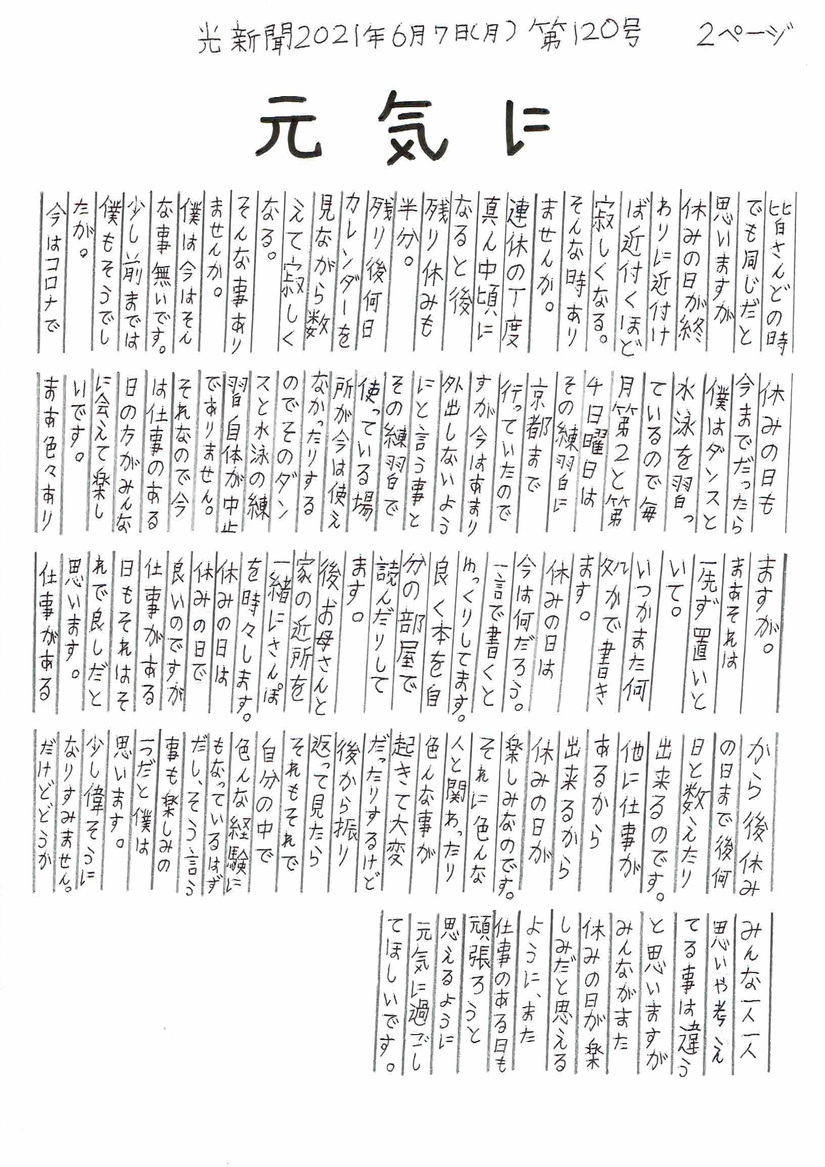 光新聞2021年6月7日(月) 第120号 2ページ
元気に
皆さんどの時
でも同じだと
思いますが
休みの日が終
わりに近付け
ば近付くほど
寂しくなる。
そんな時あり
ませんか。
連休の丁度
真ん中頃に
なると後
残り休みも
半分。
残り後何日
カレンダーを
見ながら数
えて寂しく
なる。
そんな事あり
ませんか。
僕は今はそん
な事無いです。
少し前までは
僕もそうでし
たが。
今はコロナで
休みの日も
今までだったら
僕はダンスと
水泳を習っ
ているので毎
月第2と第
4日曜日は
その練習に
京都まで
行っていたので
すが今はあまり
外出しないよう
にと言う事と
その練習で
使っている場
所が今は使え
なかったりする
のでそのダン
スと水泳の練
習自体が中止
でありません。
それなので今
は仕事のある
日の方がみんな
に会えて楽し
いです。
まあ色々あり
ますが。
まあそれは
一先ず置いと
いて。
いつかまた何
処かで書き
ます。
休みの日は
今は何だろう。
一言で書くと
ゆっくりしてます。
良く本を自
分の部屋で
読んだりして
ます。
後お母さんと
家の近所を
一緒にさんぽ
を時々します。
休みの日は
休みの日で
良いのですが
仕事がある
日もそれはそ
れで良しだと
思います。
仕事がある
から後休み
の日まで後何
日と数えたり
出来るのです。
他に仕事が
あるから
出来るから
休みの日が
楽しみなのです。
それに色んな
人と関わったり
色んな事が
起きて大変
だったりするけど
後から振り
返って見たら
それもそれで
自分の中で
色んな経験に
もなっているはず
だし、そう言う
事も楽しみの
一つだと僕は
思います。
少し偉そうに
なりすみません。
だけどどうか
みんな一人一人
思いや考え
てる事は違う
と思いますが
みんながまた
休みの日が楽
しみだと思える
ように、また
仕事のある日も
頑張ろうと
思えるように
元気に過ごし
てほしいです。